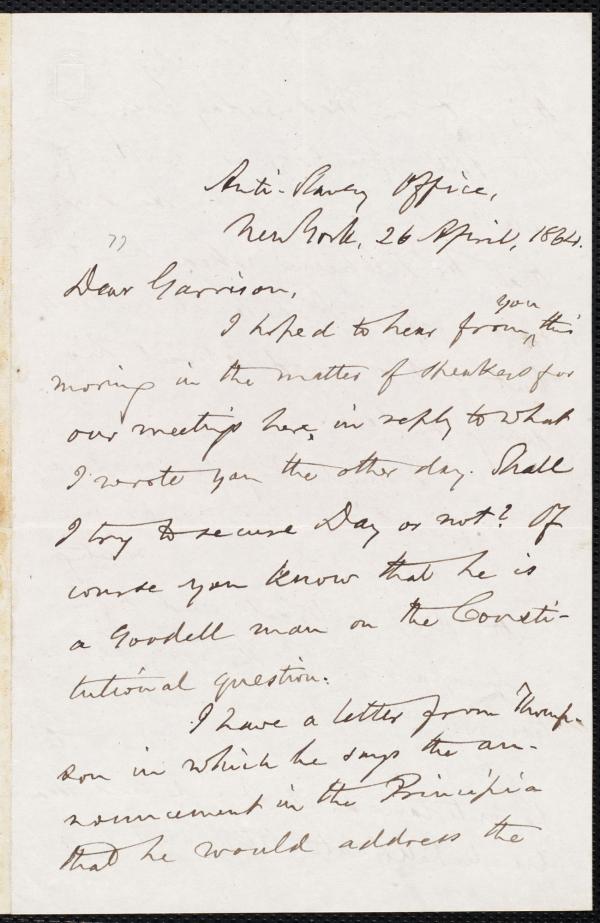 Anti-Slavery Office,
New York, 26 April, 1864.
77
Dear Garrison,
I hoped to hear from you this
morning in the matter of speakers for
our meetings here, in reply to what
I wrote you the other day. Shall
I try to secure Day or not? Of
course you know that he is
a Goodell man on the Consti-
tutional question.
I have a letter from Thomp-
son in which he says the an-
nouncement in the Principia
that he would address the